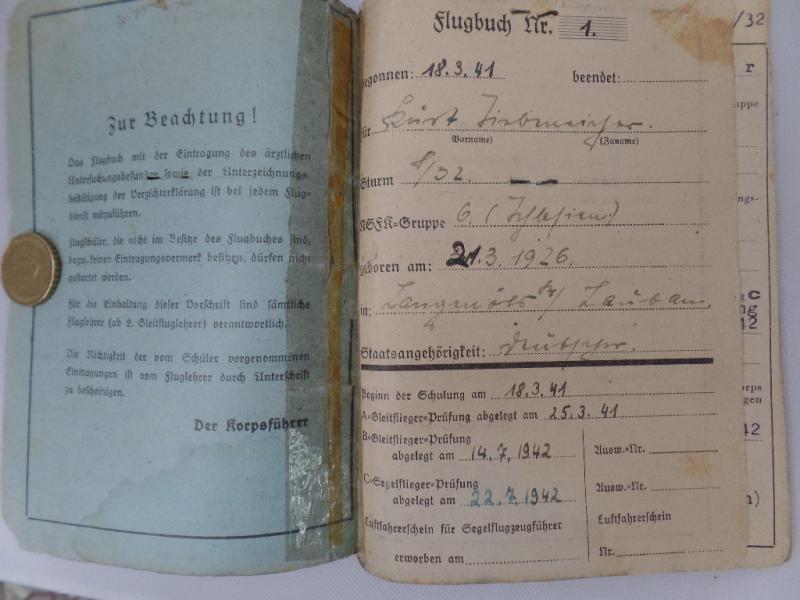 Zur Beachtung!
Das Flugbuch mit der Eintragung des ärztlichen
Untersuchungsbefundes sowie der Unterzeichnungs-
bestätigung der Verzichterklärung ist bei jedem Flug-
dienst mitzuführen.
Flugschüler, die nicht im Besitze des Flugbuches sind,
bezw. keinen Eintragungsvermerk besitzen, dürfen nicht
gestartet werden.
Für die Einhaltung dieser Vorschrift sind sämtliche
Fluglehrer (ab 2. Gleitfluglehrer) verantwortlich.
Die Richtigkeit der vom Schüler vorgenommenen
Eintragungen ist vom Fluglehrer durch Unterschrift
zu bescheinigen.
Der Korpsführer
Flugbuch Nr. 1.
Begonnen: 18.3.41 beendet:
für Kurt
Vorname) (Zuname)
Sturm 8/32.
NSFK-Gruppe 6. (Schlesien)
geboren am: 21.3.1926.
in: Langenöls Kr/ Lauban.
Staatsangehörigkeit: Deutscher.
Beginn der Schulung am 18.3.41
A-Gleitflieger-Prüfung abgelegt am 25.3.41
B-Gleitflieger-Prüfung
abgelegt am 14.7.1942 Ausw.-Nr.
C-Segelflieger-Prüfung
abgelegt am 22.7.1942 Ausw.-Nr.
Luftfahrerschein für Segelflugzeugführer Luftfahrerschein
erworben am Nr.
/32
r